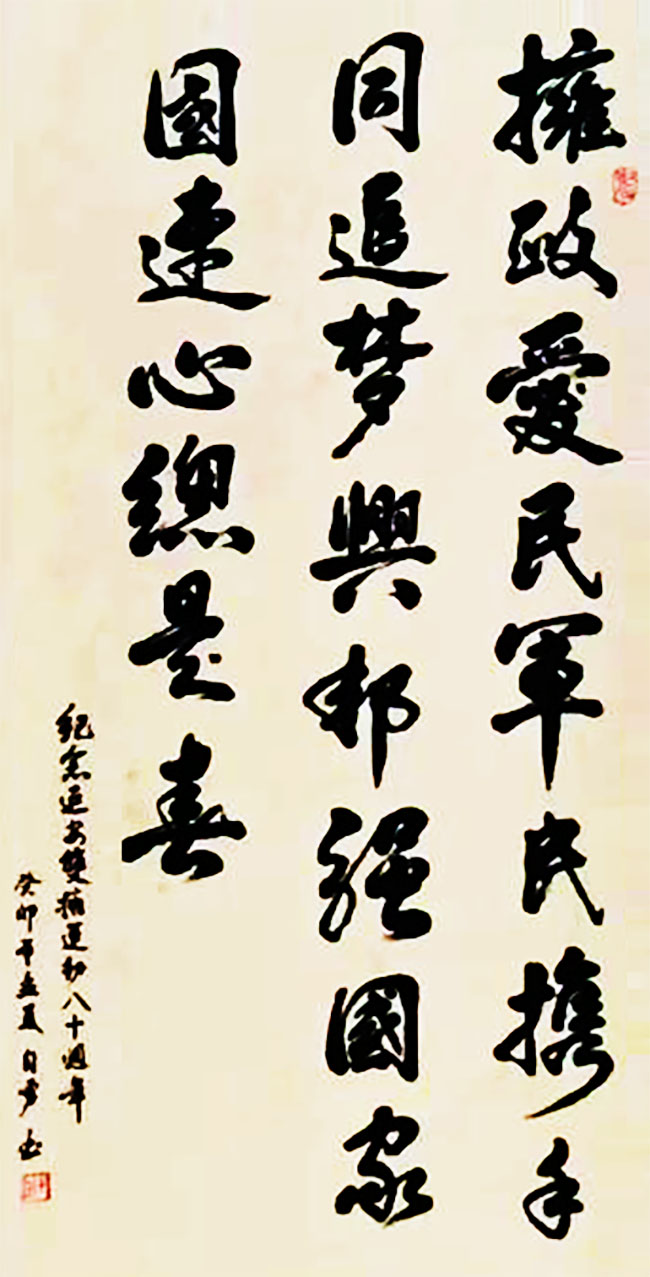 擁政愛民軍民携手
同追梦興邦强國家
國連心總是春
紀念延安雙擁運動八十週年
癸卯年孟夏